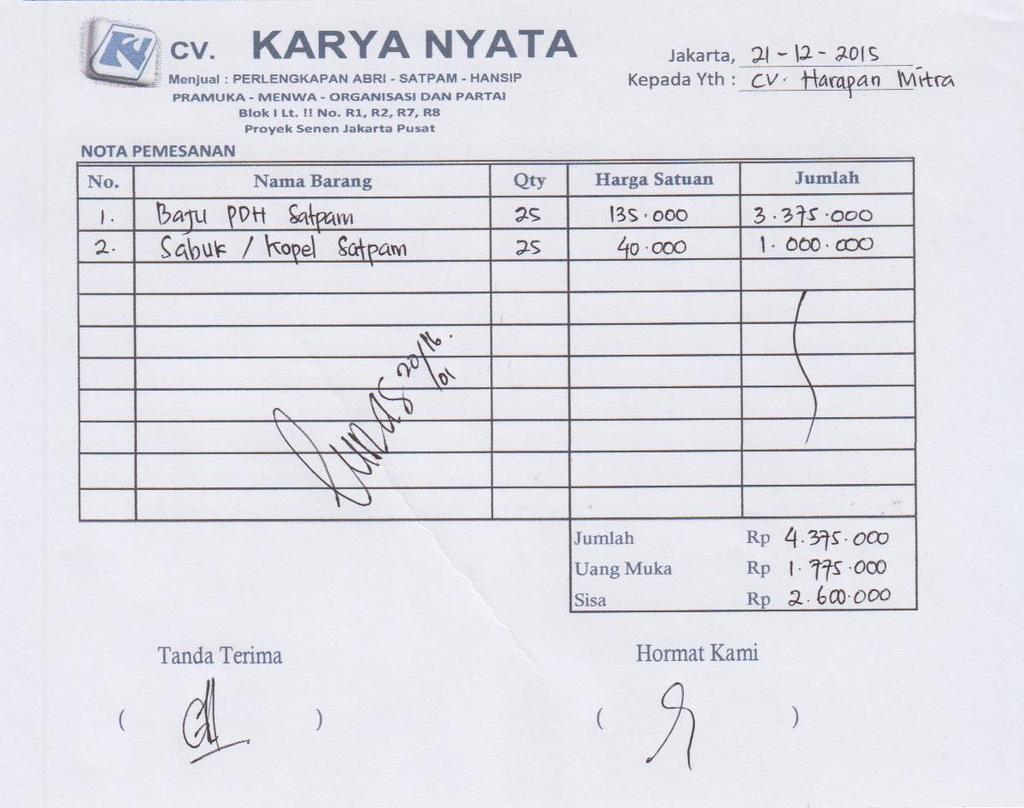 CV. KARYA NYATA
Menjual : PERLENGKAPAN ABRI - SATPAM - HANSIP
PRAMUKA - MENWA - ORGANISASI DAN PARTAI
Blok I Lt. !! No. R1, R2, R7, R8
Proyek Senen Jakarta Pusat
Jakarta, 21 - 12 - 2015
Kepada Yth : CV. Harapan Mitra
NOTA PEMESANAN
No. Nama Barang Qty Harga Satuan Jumlah
1. Baju PDH Satpam 25 135.000 3.375.000
2. Sabuk / Kopel Satpam 25 40.000 1.000.000
Lunas 20/01 16.
Jumlah Rp 4.375.000
Uang Muka Rp 1.775.000
Sisa Rp 2.600.000
Tanda Terima Hormat Kami
( ) ( )